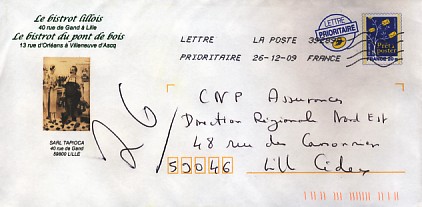 Le bistrot lillois
40 rue de Gand à Lille
Le bistrot du pont de bois
13 rue d'Orléans à Villeneuve d'Ascq
SARL TAPIOCA
40 rue de Gand
59800 LILLE
LETTRE LA POSTE
PRIORITAIRE 26-12-09 FRANCE
LETTRE
PRIORITAIRE
Prêt à
poster
FRANCE
26/
CNP Assurances
Direction Régional Nord Est
48 rue des Canonniers
59046 Lill Cidex